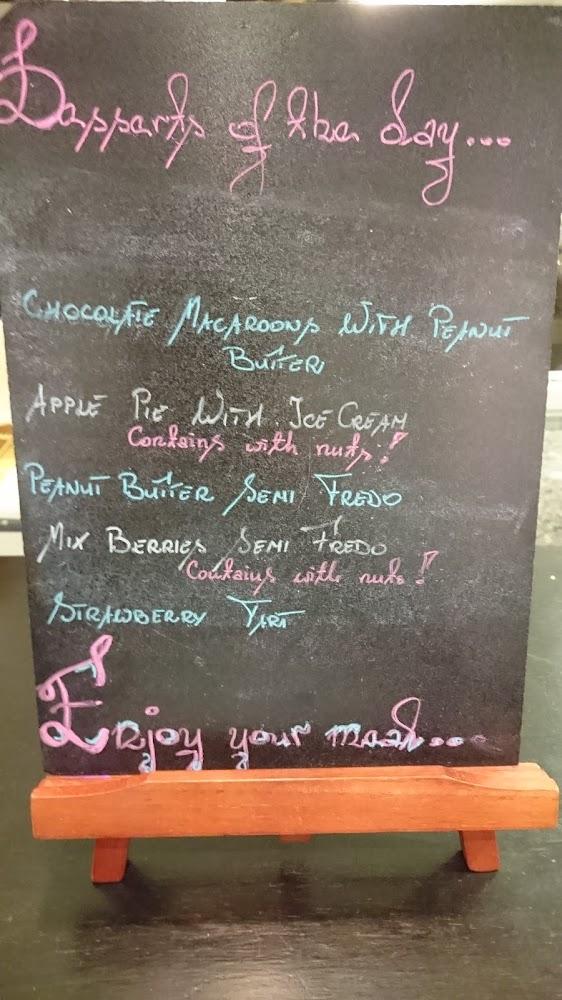 Desserts of the day...
Chocolate Macaroons With Peanut
Butter
Apple Pie With Ice Cream
Contains with nuts!
Peanut Butter Semi Fredo
Mix Berries Semi Fredo
Contains with nuts!
Strawberry Tart
Enjoy your meal...